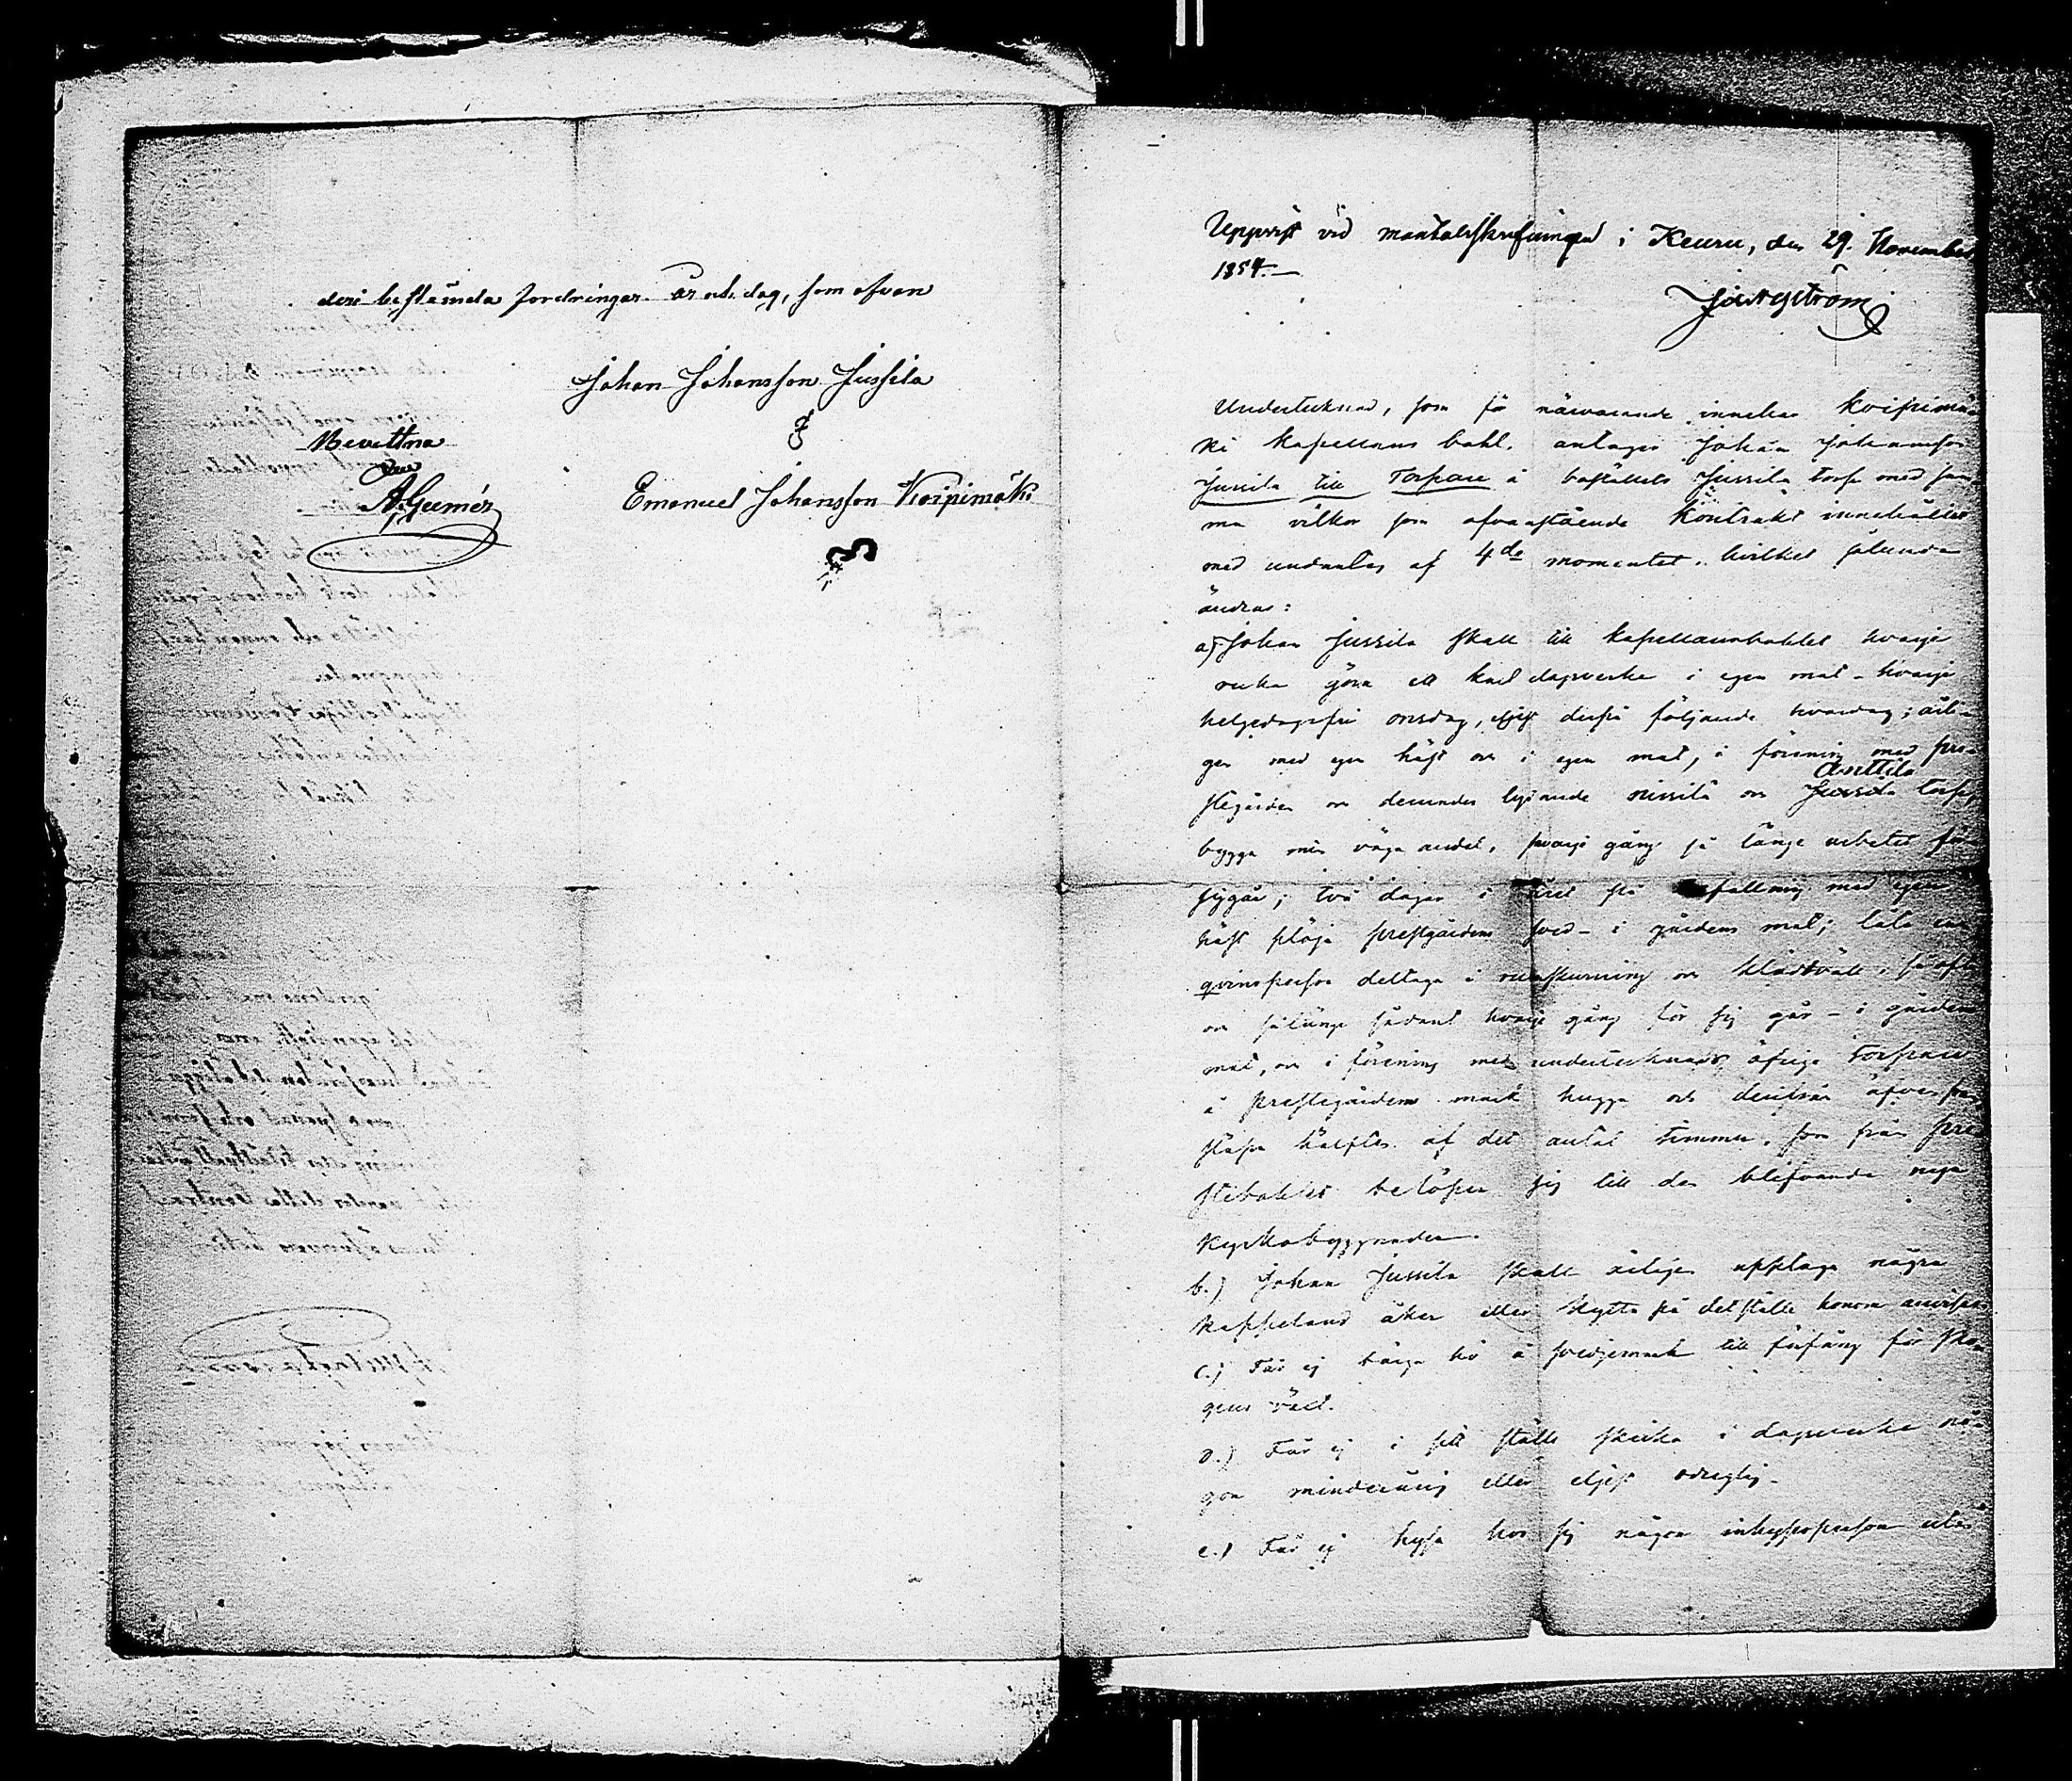 deri bestämda fordringar. År och dag, som ofvan
Johan Johansson Jussila
Bevittna
A. Gumér
Emanuel Johansson Koipimäki
Uppvist vid mantalsskrifningen i Keuru, den 29. November
1854.
Undertecknad, som för närvarande innehar Koipimä
ki Kapellans bohl, antager Johan Johansson
Jussila till Torpare å boställets Jussila torp med sam
ma vilkor som ofvanstående Kontrakt innehåller
med undantag af 4de momentet, hvilket sålunda
ändras:
a) Johan Jussila skall till Kapellansbohlet hvarje
vecka göra ett karl dagsverke i egen mat - hvarje
helgedagsfri onsdag, eljest derpå följande hvardag; årli-
gen med egen häst och i egen mat, i förening med pre-
Anttila
stgården och derunder lydande och Jussila torp,
bygga min väga andel, hvarje gång så länge arbetet för
siggår; två dagar i året på befallning med egen
häst plöja prestgårdens sved - i gårdens mat; låta en
qvinsperson deltaga i och klädtvätt, så ofta
och så länge sådant hvarje gång för sig går - i gårdens
mat, och i förening med undertecknads öfriga Torpare
å prestegårdens mark hugga och derifrån
släpa hälften af det antal timmer, som från pre
stebohlet belöper sig till den blifvande nya
Kyrkobyggnaden.
b.) Johan Jussila skall årligen upptaga några
kappeland åker eller kytta på det ställe honom anvisas
c.) Får ej berga hö å svedjemark till förfång för sko
gens växt.
d.) Får ej i sitt ställe skicka i dagsverke nå
gon minderårig eller eljest oduglig.
e.) Får ej hysa hos sig någon inhysesperson utan